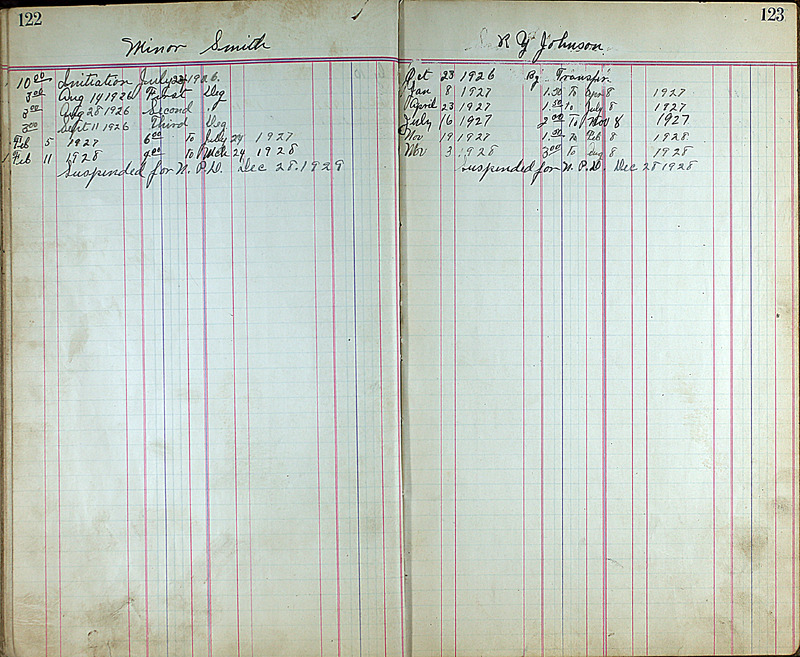 122
Minor Smith
10 00 Initiation July 1926.
3 00 Aug 14 1926 First Deg
3 00 Aug 28 1926 Second "
3 00 Sept 11 1926 Third Deg
Feb 5 1927 6 00 To July 24 1927
Feb 11 1928 9 00 To 24 1928
Suspended for N. P. D. Dec 28. 1929
123
R Y Johnson
Oct 23 1926 By Transfr
Jan 8 1927 1.50 To Apr 8 1927
April 23 1927 1.50 To July 8 1927
July 16 1927 2 00 To Nov 8 1927
Nov 19 1927 1.50 To Feb 8 1928
Nov 3 1928 3 00 To Aug 8 1928
Suspended for N. P. D. Dec 28 1928